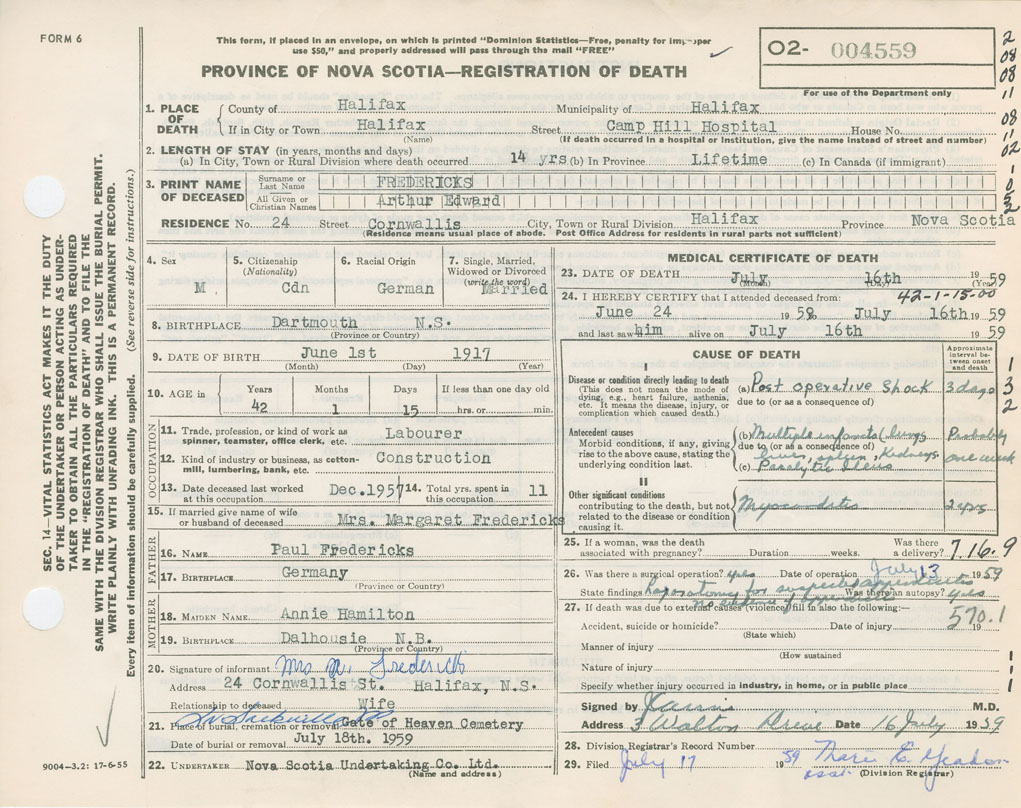 FORM 6
This form, if placed in an envelope, on which is printed "Dominion Statistics—Free, penalty for improper
use $50," and properly addressed will pass through the mail "FREE"
PROVINCE OF NOVA SCOTIA—REGISTRATION OF DEATH
O2- 004559
For use of the Department only
2
08
08
11
08
11
02
1. PLACE OF DEATH County of Halifax Municipality of Halifax
If in City or Town Halifax Street Camp Hill Hospital House No.
(Name) (If death occurred in a hospital or institution, give the name instead of street and number)
2. LENGTH OF STAY (in years, months and days)
(a) In City, Town or Rural Division where death occurred 14 yrs (b) In Province Lifetime (c) In Canada (if immigrant)
3. PRINT NAME OF DECEASED
Surname or Last Name FREDERICKS
All Given or Christian Names Arthur Edward
1
0
5
2
RESIDENCE No. 24 Street Cornwallis City, Town or Rural Division Halifax Province Nova Scotia
(Residence means usual place of abode. Post Office Address for residents in rural parts not sufficient)
4. Sex M
5. Citizenship (Nationality) Cdn
6. Racial Origin German
7. Single, Married, Widowed or Divorced (write the word) Married
8. BIRTHPLACE Dartmouth N.S.
(Province or Country)
9. DATE OF BIRTH June 1st 1917
(Month) (Day) (Year)
10. AGE in Years 42 Months 1 Days 15 If less than one day old hrs. or min.
OCCUPATION
11. Trade, profession, or kind of work as spinner, teamster, office clerk, etc. Labourer
12. Kind of industry or business, as cotton-mill, lumbering, bank, etc. Construction
13. Date deceased last worked at this occupation Dec.1957
14. Total yrs. spent in this occupation 11
15. If married give name of wife or husband of deceased Mrs. Margaret Fredericks
FATHER
16. NAME Paul Fredericks
17. BIRTHPLACE Germany
(Province or Country)
MOTHER
18. MAIDEN NAME Annie Hamilton
19. BIRTHPLACE Dalhousie N.B.
(Province or Country)
20. Signature of informant Mrs Fredericks
Address 24 Cornwallis St. Halifax, N.S.
Relationship to deceased Wife
21. Place of burial, cremation or removal Gate of Heaven Cemetery
Date of burial or removal July 18th. 1959
22. UNDERTAKER Nova Scotia Undertaking Co. Ltd.
(Name and address)
MEDICAL CERTIFICATE OF DEATH
23. DATE OF DEATH July 16th 1959
(Month) (Day) (Year)
24. I HEREBY CERTIFY that I attended deceased from: 42-1-15-00
June 24 1959, July 16th 1959
and last saw him alive on July 16th 1959
CAUSE OF DEATH
Approximate interval between onset and death
I
Disease or condition directly leading to death
(This does not mean the mode of dying, e.g., heart failure, asthenia, etc. It means the disease, injury, or complication which caused death.)
(a) Post operative Shock 3 days
due to (or as a consequence of)
1
3
2
Antecedent causes
Morbid conditions, if any, giving rise to the above cause, stating the underlying condition last.
(b) Multiple infarcts lungs Probably
due to (or as a consequence of)
liver, spleen, Kidneys one week
(c) Paralytic Ileus
II
Other significant conditions
contributing to the death, but not related to the disease or condition causing it.
Myocarditis 2 yrs
25. If a woman, was the death associated with pregnancy? Duration weeks. Was there a delivery? 7.16.9
26. Was there a surgical operation? yes Date of operation July 13 1959
State findings Laparotomy for suspected appendicitis Was there an autopsy? yes
27. If death was due to external causes (violence) fill in also the following:—
570.1
Accident, suicide or homicide? Date of injury 19
(State which)
Manner of injury
(How sustained
Nature of injury
Specify whether injury occurred in industry, in home, or in public place
1
1
1
Signed by M.D.
Address 3 Walton Drive Date 16 July 1959
28. Division Registrar's Record Number
29. Filed July 17 1959 Marie E.
asst. (Division Registrar)
SEC. 14—VITAL STATISTICS ACT MAKES IT THE DUTY
OF THE UNDERTAKER OR PERSON ACTING AS UNDER-
TAKER TO OBTAIN ALL THE PARTICULARS REQUIRED
IN THE "REGISTRATION OF DEATH" AND TO FILE THE
SAME WITH THE DIVISION REGISTRAR WHO SHALL ISSUE THE BURIAL PERMIT.
WRITE PLAINLY WITH UNFADING INK. THIS IS A PERMANENT RECORD.
Every item of information should be carefully supplied. (See reverse side for instructions.)
9004-3.2: 17-6-55